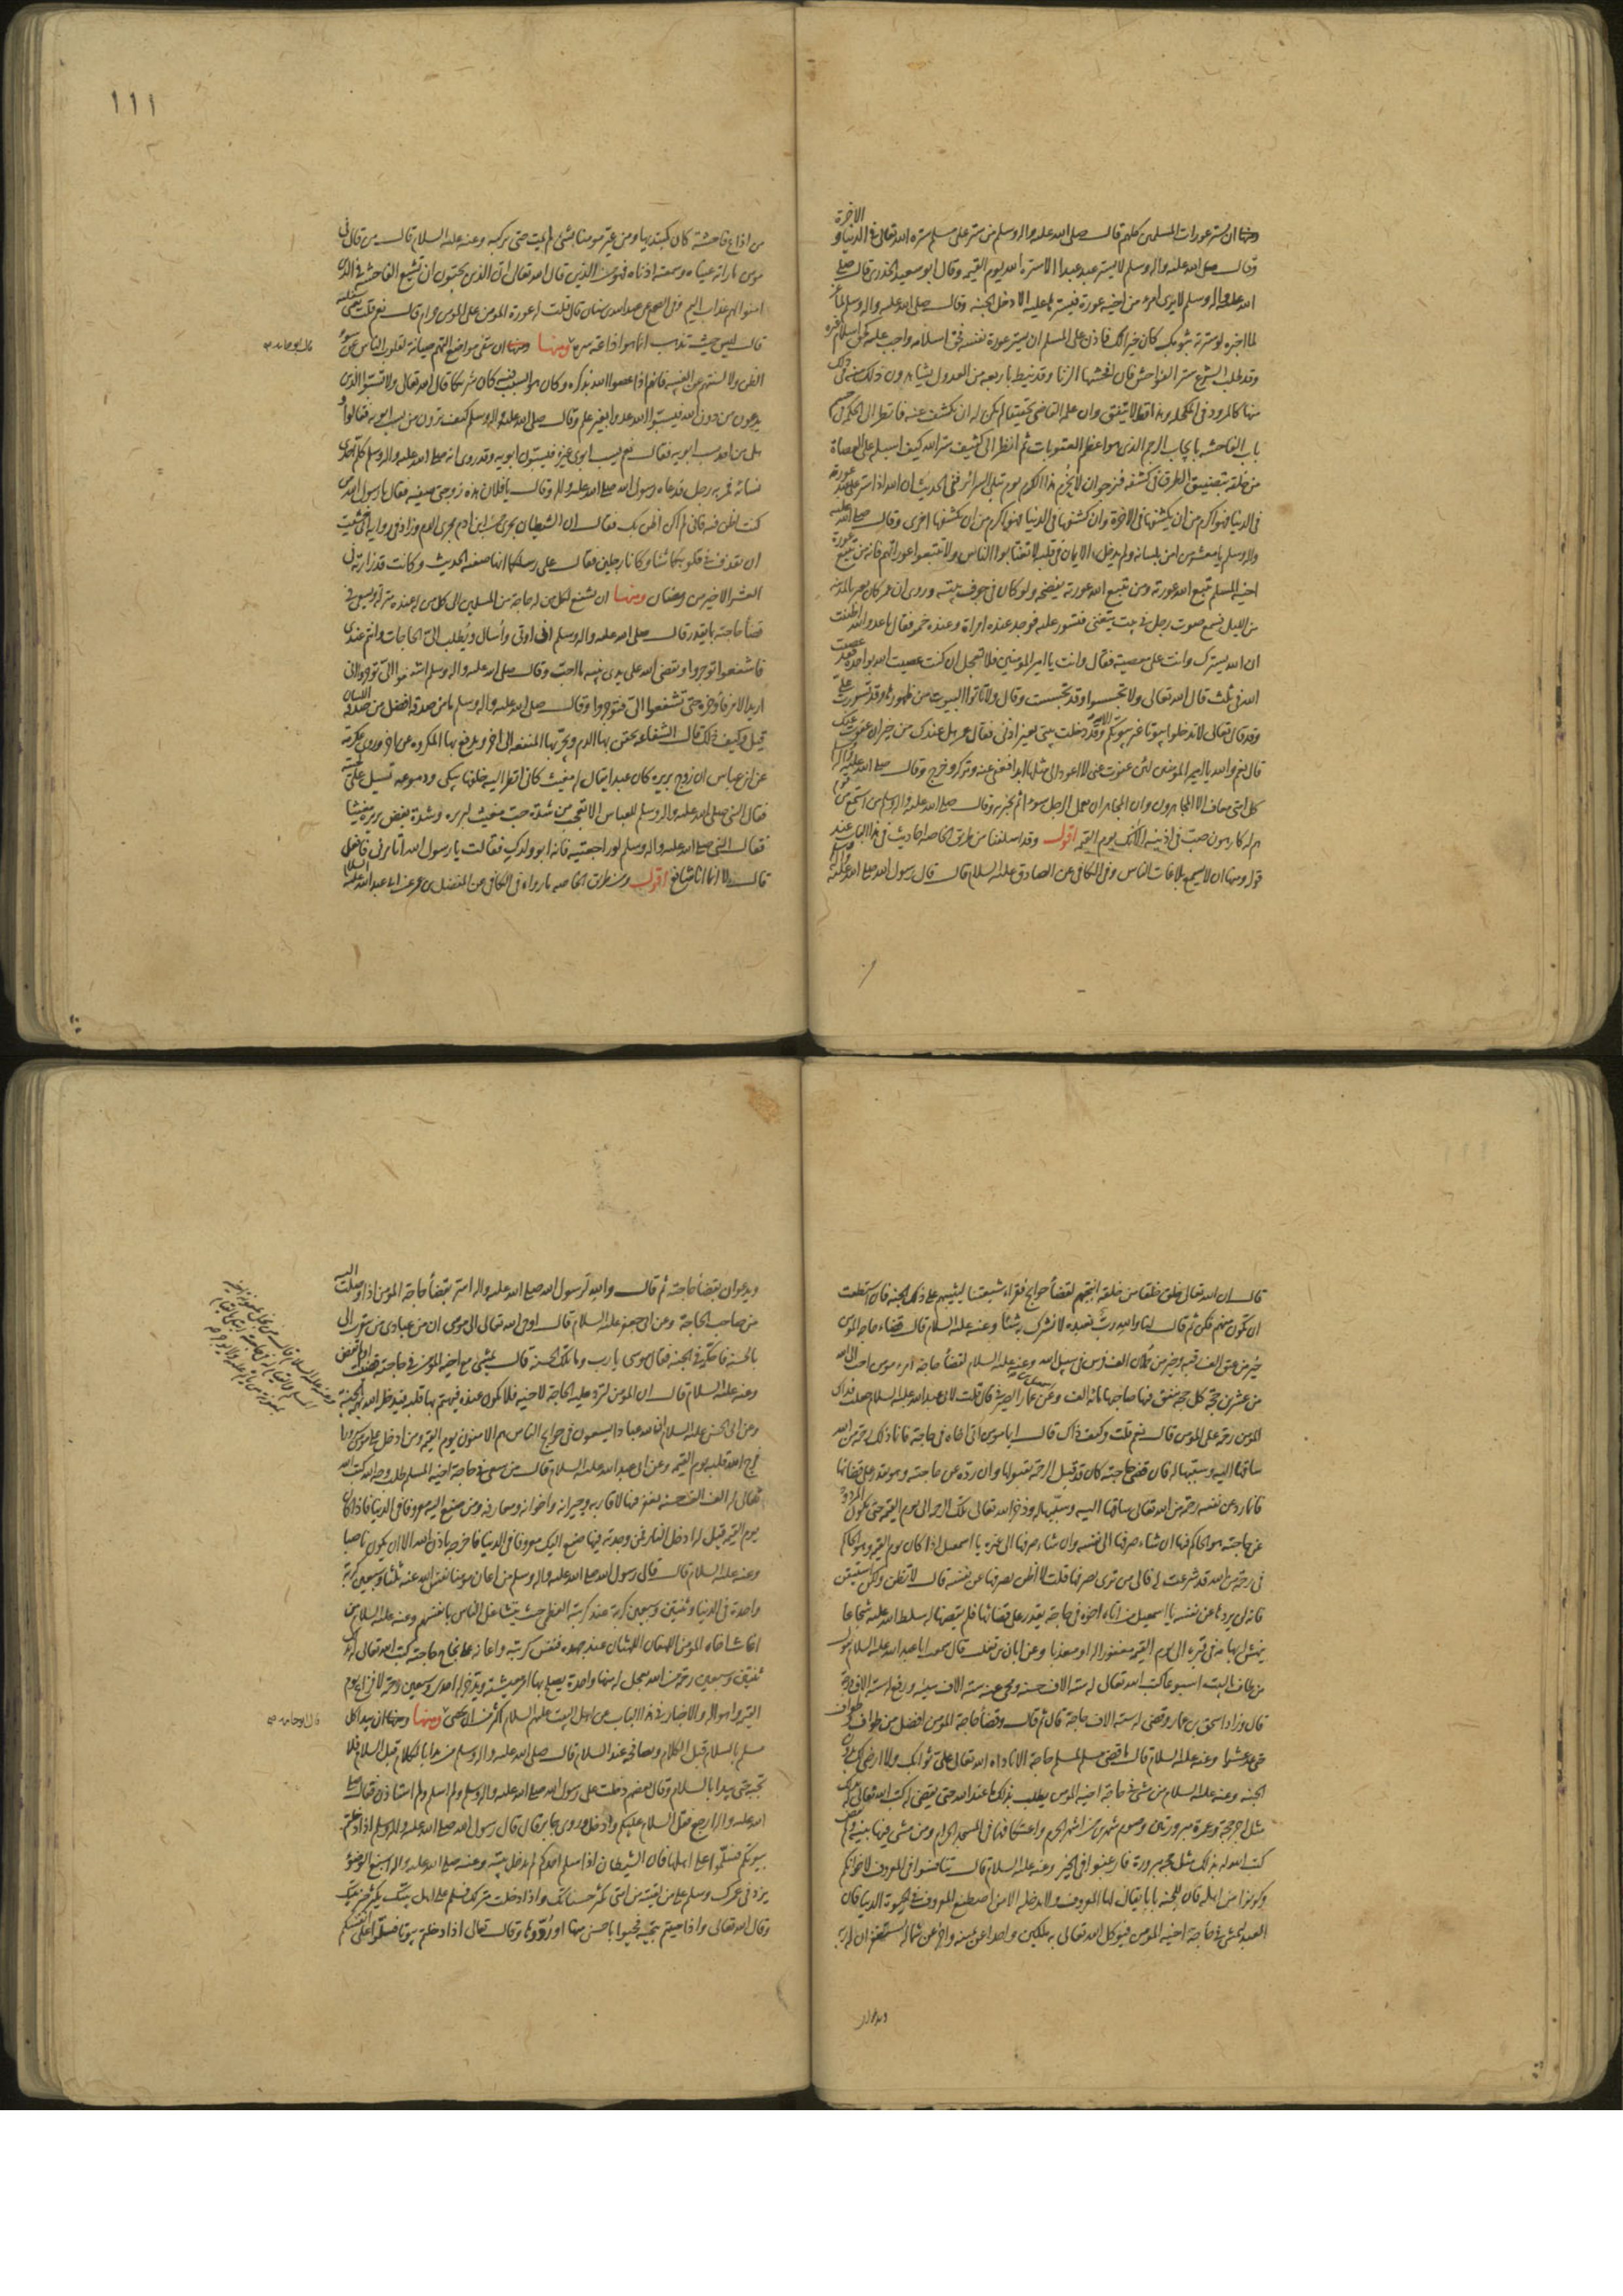 ومنها ان يستر عورات المسلمين كلهم قال صلى الله عليه واله وسلم من ستر على مسلم ستره الله تعالى في الدنيا و الاخرة
وقال صلى الله عليه واله وسلم لا يستر عبد عبدا الا ستره الله يوم القيمه وقال ابو سعيد الخدري قال صلى
الله عليه واله وسلم لا يرى امرء من اخيه عورة فيسترها عليه الا دخل الجنة وقال صلى الله عليه واله وسلم لماعز
لما اخبره لو سترته بثوبك كان خيرا لك فاذن على المسلم ان يستر عورة نفسه فحق اسلامه واجب عليه كحق اسلام غيره
وقد طلب الشرع ستر الفواحش فان افحشها الزنا وقد نيط باربعه من العدول يشاهدون ذلك منه في ذلك
منها كالمرود في المكحله وهذا قط لا يتفق وان علمه القاضي تحقيقا لم يكن له ان يكشف عنه فانظر الى الحكمة في حسم
باب الفاحشه بايجاب الرجم الذي هو اعظم العقوبات ثم انظر الى كثيف ستر الله كيف اسبله على العصاة
من خلقه بتضييق الطرق في كشفه فنرجو ان لا نحرم هذا الكرم يوم تبلى السرائر ففي الحديث ان الله اذا ستر على عبد عورته
في الدنيا فهو اكرم من ان يكشفها في الاخرة وان كشفها في الدنيا فهو اكرم من ان يكشفها اخرى وقال صلى الله عليه
واله وسلم يا معشر من امن بلسانه ولم يدخل الايمان في قلبه لا تغتابوا الناس ولا تتبعوا عوراتهم فانه من تتبع عورة
اخيه المسلم تتبع الله عورته ومن تتبع الله عورته يفضحه ولو كان في جوف بيته وروي ان عمر كان يعس بالمدينه
من الليل فسمع صوت رجل في بيت يتغنى فتسور عليه فوجد عنده امراة وعنده خمر فقال يا عدو الله اظننت
ان الله يسترك وانت على معصيته فقال وانت يا امير المؤمنين فلا تعجل ان كنت عصيت الله بواحدة فقد عصيت
الله في ثلث قال الله تعالى ولا تجسسوا وقد تجسست وقال ولا تاتوا البيوت من ظهورها وقد تسورت علي
وقد قال تعالى لا تدخلوا بيوتا غير بيوتكم الاية وقد دخلت بيتي بغير اذني فقال عمر هل عندك من خير ان عفوت عنك
قال نعم والله يا امير المؤمنين لئن عفوت عني لا اعود الى مثلها ابدا فعفى عنه وتركه وخرج وقال صلى الله عليه واله
كل امتي معافى الا المجاهرون وان المجاهر ان يعمل الرجل سوءا ثم يخبر به وقال صلى الله عليه واله وسلم من استمع من قوم
هم له كارهون صب في اذنيه الآنك يوم القيمه اقول وقد اسلفنا من طريق الخاصه احاديث في هذا الباب عند
قوله ومنها ان لا يسمع بلاغات الناس وفي الكافي عن الصادق عليه السلام قال قال رسول الله صلى الله عليه واله
١١١
من اذاع فاحشة كان كمبتدئها ومن عير مؤمنا بشيء لم يمت حتى يركبه وعنه عليه السلام قال من قال في
مؤمن ما راته عيناه وسمعته اذناه فهو من الذين قال الله تعالى ان الذين يحبون ان تشيع الفاحشة في الذين
امنوا لهم عذاب اليم وفي الصحيح عن عبد الله بن سنان قال قلت له عورة المؤمن على المؤمن حرام قال نعم قلت يعني سفليه
قال ليس حيث تذهب انما هو اذاعة سره ومنها ان يتقي مواضع التهم صيانة لقلوب الناس عن سوء
قال ابو حامد
الظن ولالسنتهم عن الغيبه فانهم اذا عصوا الله بذكره وكان هو السبب فيه كان شريكا قال الله تعالى ولا تسبوا الذين
يدعون من دون الله فيسبوا الله عدوا بغير علم وقال صلى الله عليه واله وسلم كيف ترون من يسب ابويه فقالوا و
هل من احد يسب ابويه فقال نعم يسب ابوي غيره فيسبون ابويه وقد روي انه صلى الله عليه واله وسلم كلم احدى
نسائه فمر به رجل فدعاه رسول الله صلى الله عليه واله وقال يا فلان هذه زوجتي صفيه فقال يا رسول الله من
كنت اظن فيه فاني لم اكن اظن بك فقال ان الشيطان يجري من ابن ادم مجرى الدم وزاد في رواية اني خشيت
ان يقذف في قلوبكما شيئا وكانا رجلين فقال على رسلكما انها صفيه الحديث وكانت قد زارته في
العشر الاخير من رمضان ومنها ان يشفع لكل من له حاجة من المسلمين الى كل من له عنده منزلة ويسعى في
قضاء حاجته بما يقدر قال صلى الله عليه واله وسلم اني اوتى واسال ويطلب الي الحاجات وانتم عندي
فاشفعوا توجروا ويقضي الله على يدي نبيه ما احب وقال صلى الله عليه واله وسلم اشفعوا الي توجروا اني
اريد الامر فاؤخره حتى تشفعوا الي فتوجروا وقال صلى الله عليه واله وسلم ما من صدقة افضل من صدقة اللسان
قيل وكيف ذلك قال الشفاعه يحقن بها الدم ويجر بها المنفعه الى اخر ويدفع بها المكروه عن اخر وروى عكرمة
عن ابن عباس ان زوج بريرة كان عبدا يقال له مغيث كاني انظر اليه خلفها يبكي ودموعه تسيل على لحيته
فقال النبي صلى الله عليه واله وسلم للعباس الا تعجب من شدة حب مغيث لبريره وشدة بغض بريره مغيثا
فقال النبي صلى الله عليه واله وسلم لو راجعتيه فانه ابو ولدك فقالت يا رسول الله اتامرني فافعل
قال لا انما انا شافع اقول ومن طريق الخاصه ما رواه في الكافي عن المفضل بن عمر عن ابي عبد الله عليه السلام
قال ان الله تعالى خلق خلقا من خلقه انتجبهم لقضاء حوايج فقراء شيعتنا ليثيبهم على ذلك الجنة فان استطعت
ان تكون منهم فكن ثم قال لنا والله رب نعبده لا نشرك به شيئا وعنه عليه السلام قال قضاء حاجه المؤمن
خير من عتق الف رقبه وخير من حملان الف فرس في سبيل الله وعنه عليه السلام لقضاء حاجة امرء مؤمن احب الى الله
من عشرين حجة كل حجه ينفق فيها صاحبها مائة الف وعن اسمعيل بن عمار الصيرفي قال قلت لابي عبد الله عليه السلام جعلت فداك
المؤمن رحمة على المؤمن قال نعم قلت وكيف ذاك قال ايما مؤمن اتى اخاه في حاجة فانما ذلك رحمة من الله
ساقها اليه وسببها له فان قضى حاجته كان قد قبل الرحمة بقبولها وان رده عن حاجته وهو يقدر على قضائها
فانما رد عن نفسه رحمة من الله تعالى ساقها اليه وسببها له وذخر الله تعالى تلك الرحمه الى يوم القيمه حتى يكون المردود
عن حاجته هو الحاكم فيها ان شاء صرفها الى نفسه وان شاء صرفها الى غيره يا اسمعيل اذا كان يوم القيمه وهو الحاكم
في رحمة من الله قد شرعت له فالى من ترى يصرفها قلت لا اظن يصرفها عن نفسه قال لا تظن ولكن استيقن
فانه لن يردها عن نفسه يا اسمعيل من اتاه اخوه في حاجة يقدر على قضائها فلم يقضها له سلط الله عليه شجاعا
ينهش ابهامه في قبره الى يوم القيمه مغفورا له او معذبا وعن ابان بن تغلب قال سمعت ابا عبد الله عليه السلام يقول
من طاف بالبيت اسبوعا كتب الله تعالى له ستة الاف حسنه ومحى عنه سته الاف سيئه ورفع له سته الاف درجة
قال وزاد اسحق بن عمار وقضى له سته الاف حاجة قال ثم قال وقضاء حاجة المؤمن افضل من طواف وطواف
حتى عد عشرا وعنه عليه السلام قال ما قضى مسلم لمسلم حاجة الا ناداه الله تعالى علي ثوابك ولا ارضى لك بدون
الجنه وعنه عليه السلام من مشى في حاجة اخيه المؤمن يطلب بذلك ما عند الله حتى تقضى له كتب الله تعالى له بذلك
مثل اجر حجة وعمرة مبرورتين وصوم شهرين من اشهر الحرم واعتكافهما في المسجد الحرام ومن مشى فيها بنية ولم تقض
كتب الله له بذلك مثل حجة مبرورة فارغبوا في الخير وعنه عليه السلام قال تنافسوا في المعروف لاخوانكم
وكونوا من اهله فان للجنة بابا يقال لها المعروف ولا يدخله الا من اصطنع المعروف في الحيوة الدنيا فان
العبد ليمشي في حاجة اخيه المؤمن فيوكل الله تعالى به ملكين واحدا عن يمينه واخر عن شماله يستغفران له ربه
ويدعوان
ويدعوان بقضاء حاجته ثم قال والله لرسول الله صلى الله عليه واله اسر بقضاء حاجة المؤمن اذا وصلت اليه
من صاحب الحاجة وعن ابي جعفر عليه السلام قال اوحى الله تعالى الى موسى ان من عبادي من يتقرب الي
بالحسنة فاحكمه في الجنة فقال موسى يا رب وما تلك الحسنة قال يمشي مع اخيه المؤمن في حاجته قضيت او لم تقض
وعنه عليه السلام قال ان المؤمن لترد عليه الحاجة لاخيه فلا تكون عنده فيهتم بها قلبه فيدخله الله بهمه الجنة
وعن ابي الحسن عليه السلام ان لله عبادا يسعون في حوايج الناس هم الامنون يوم القيمه ومن ادخل على مؤمن سرورا
فرح الله قلبه يوم القيمه وعن ابي عبد الله عليه السلام قال من سعى في حاجة اخيه المسلم طلب وجه الله كتب الله
تعالى له الف الف حسنه يغفر فيها لاقاربه وجيرانه واخوانه ومعارفه ومن صنع اليه معروفا في الدنيا فاذا كان
يوم القيمه قيل له ادخل النار فمن وجدته فيها صنع اليك معروفا في الدنيا فاخرجه باذن الله الا ان يكون ناصبا
وعنه عليه السلام قال قال رسول الله صلى الله عليه واله وسلم من اعان مؤمنا نفس الله عنه ثلثا وسبعين كربة
واحدة في الدنيا وثنتين وسبعين كربة عند كربه العظمى حيث يتشاغل الناس بانفسهم وعنه عليه السلام من
اغاث اخاه المؤمن اللهفان اللهثان عند جهده فنفس كربته واعانه على نجاح حاجته كتب الله تعالى له
ثنتين وسبعين رحمة من الله يعجل له منها واحدة يصلح بها امر معيشته ويدخر له احدى وسبعين رحمة لافزاع يوم
القيمه واهواله والاخبار في هذا الباب عن اهل البيت عليهم السلام اكثر من ان تحصى ومنها ان يبدا كل
قال ابو حامد
مسلم بالسلام قبل الكلام ويصافحه عند السلام قال صلى الله عليه واله وسلم من بدا بالكلام قبل السلام فلا
تجيبوه حتى يبدا بالسلام وقال بعضهم دخلت على رسول الله صلى الله عليه واله وسلم ولم اسلم ولم استاذن فقال صلى
الله عليه واله ارجع فقل السلام عليكم وادخل وروى جابر قال قال رسول الله صلى الله عليه واله وسلم اذا دخلتم
بيوتكم فسلموا على اهلها فان الشيطان اذا سلم احدكم لم يدخل بيته وعنه صلى الله عليه واله اسبغ الوضوء
يزد في عمرك وسلم على من لقيته من امتي تكثر حسناتك واذا دخلت منزلك فسلم على اهل بيتك يكثر خير بيتك
وقال الله تعالى واذا حييتم بتحية فحيوا باحسن منها او ردوها وقال تعالى اذا دخلتم بيوتا فسلموا على انفسكم